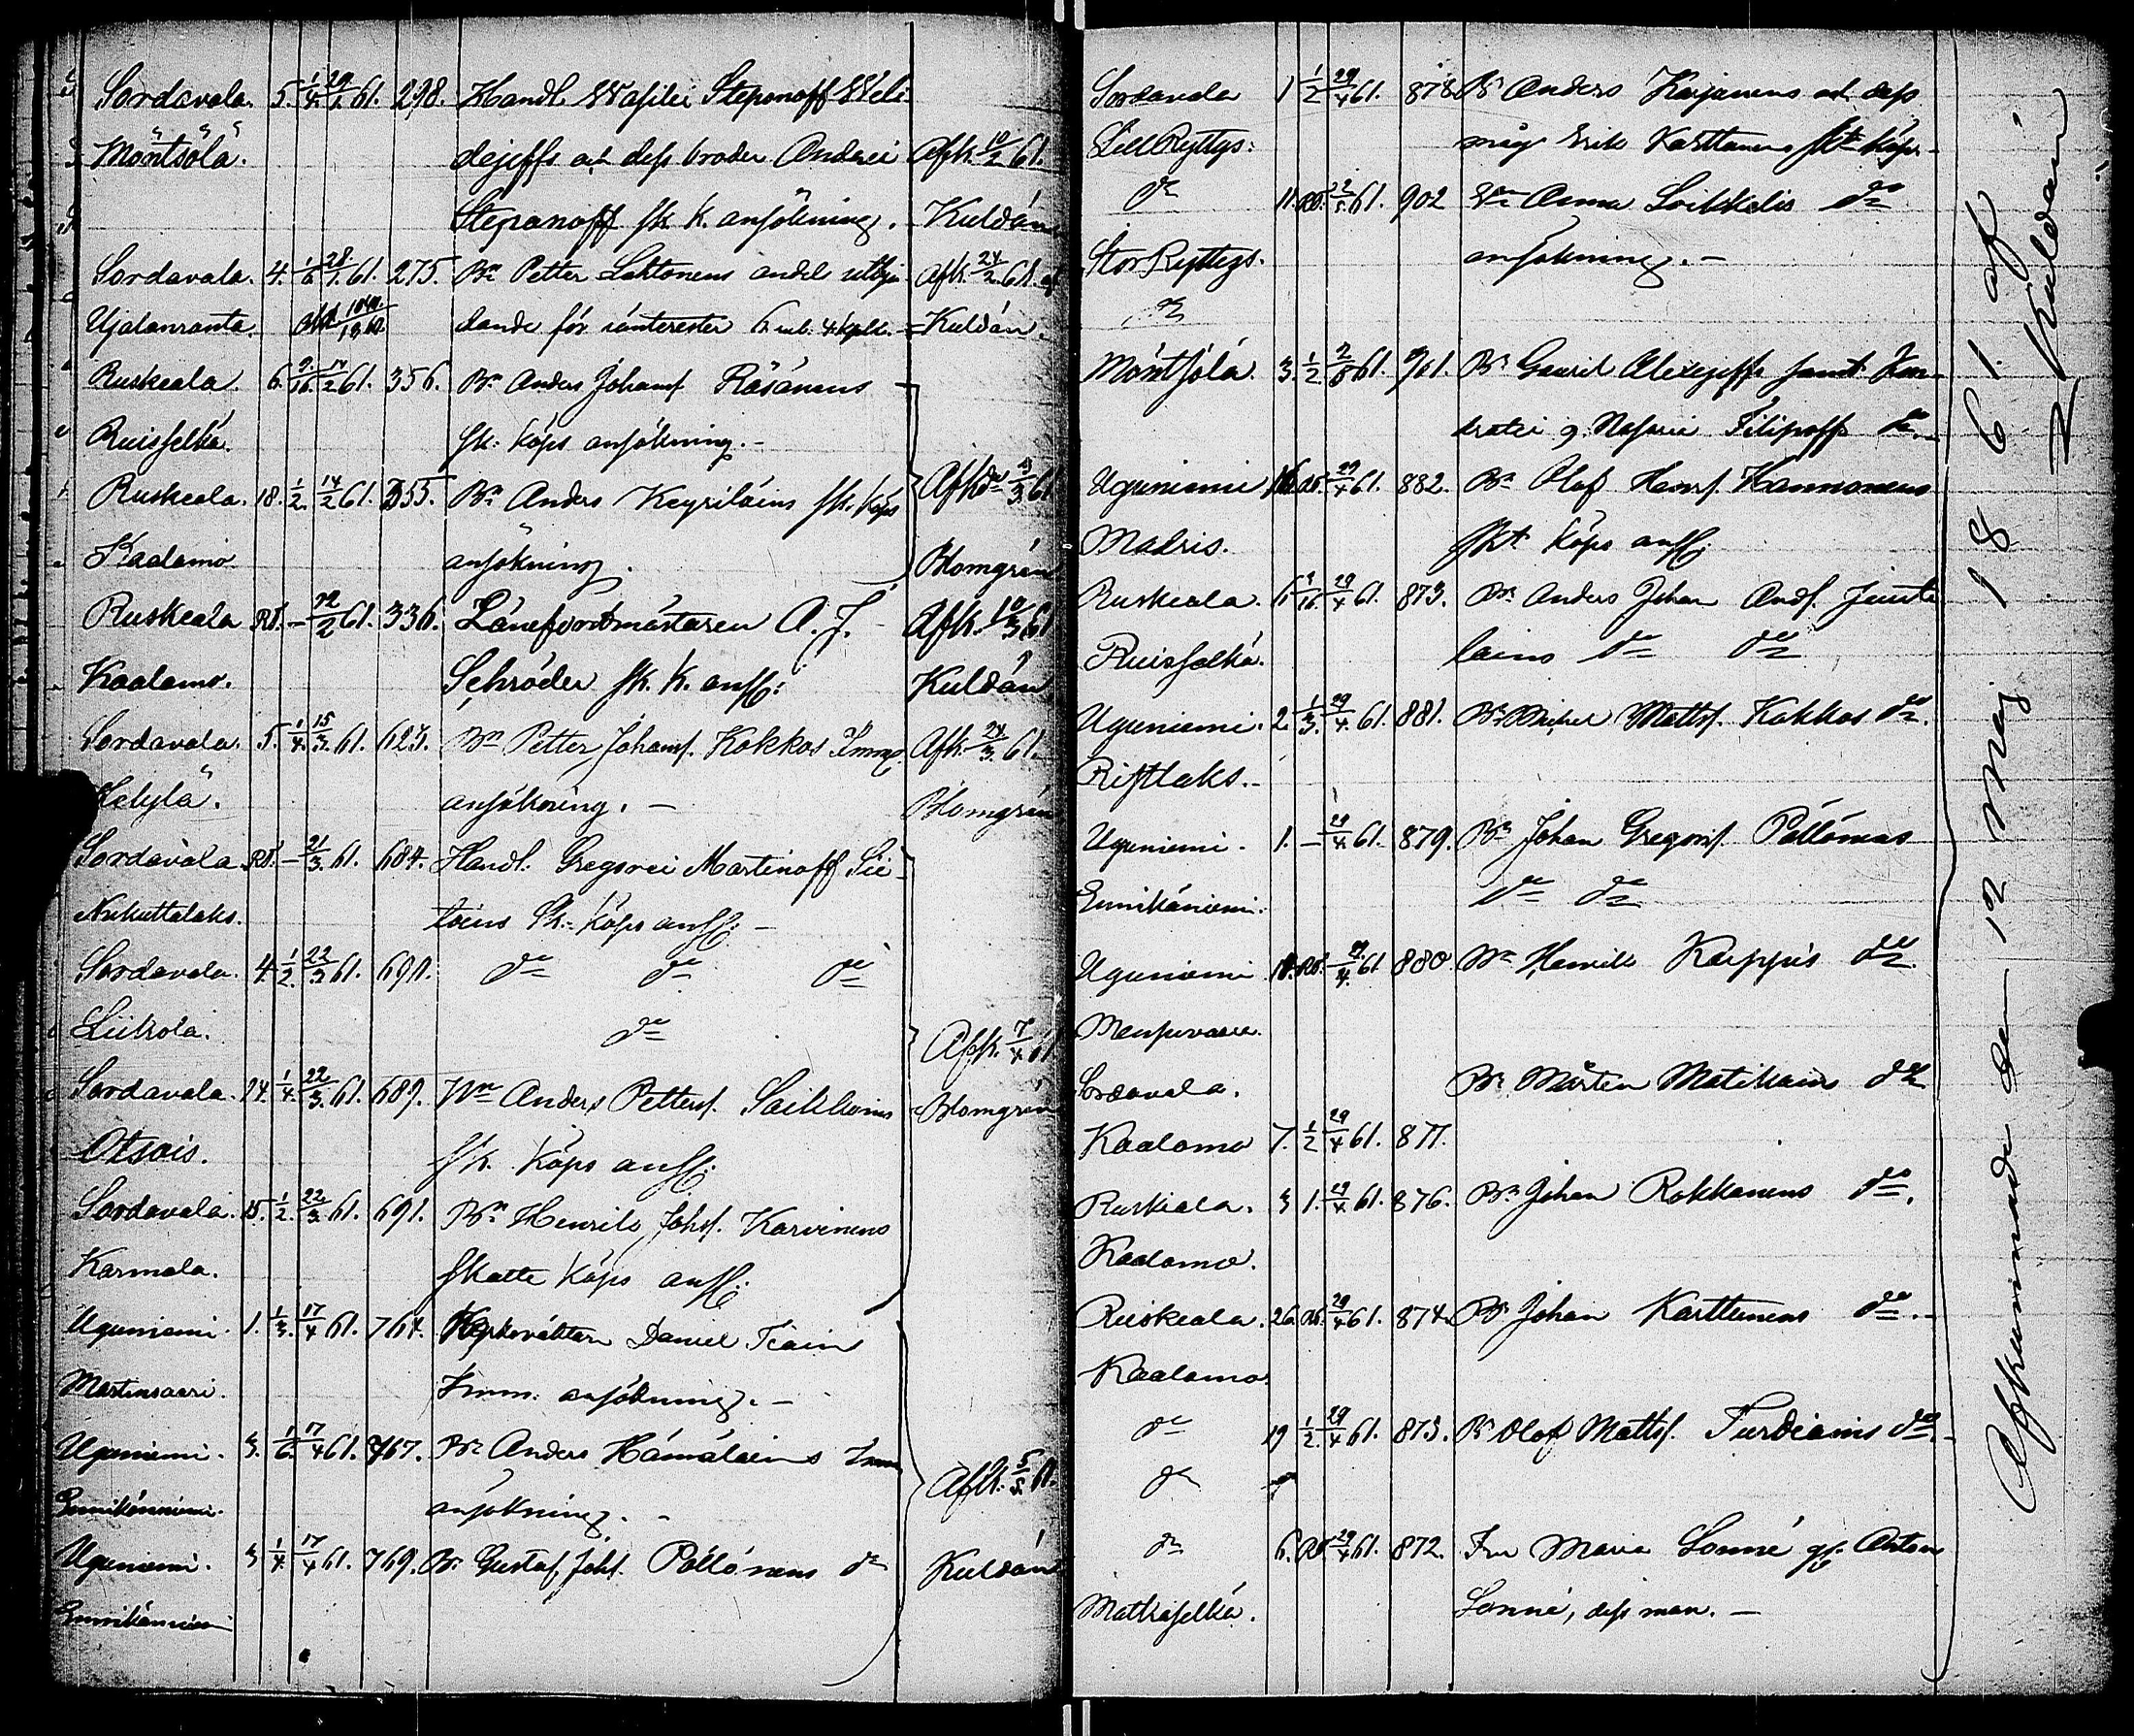 Sordavala. 5. 1/4 29/1 61. 298. Handl. Wasilei Stepanoff Weli-
Möntsölä. dejeffs och dess broder Andrei Afk. 10/2 61.
Stepanoff sk. k. ansökning. Kuldán
Sordavala. 4. 1/6 28/1 61. 275. Bn Petter Lahtonens andel utbju- Afk. 24/2 61. af
Ujalanranta. dande för ränterester 6 rub. 4 kpk. Kuldán.
Ruskeala. 6. 9/16 14/2 61. 356. Bn Anders Johansf. Räsänens
Ruisselkä. sk. köps ansökning.-
Ruskeala. 18. 1/2 14/2 61. 355. Bn Anders Keyriläins sk. köps Afk. 61
Kaalamo ansökning. Blomgrén
Ruskeala RÅ. - 12/2 61. 336. Läneforstmästaren A. J. Afk. 61
Kaalamo. Schröder sk. k. ansk: Kuldán
Sordavala. 5. 1/4 15/3 61. 623. Bn Petter Johansf. Kokkos Imm. Afk. 24/3 61.
Helylä. ansökning. - Blomgrén
Sordavala RÅ. - 21/3 61. 684. Handl. Gregorei Martinoff Sii-
Nukuttalaks. toins Sk. Köps ansk: -
Sordavala. 4. 1/2 22/3 61. 690. do do do
Liikola. do Afk. 7/4 61
Sordavala. 24. 1/4 22/3 61. 689. Bn Anders Pettersf. Saikkoins Blomgrén
Otsois. sk. Köps ansk:
Sordavala. 15. 1/2 22/3 61. 691. Bn Henrik Johsf. Karvinens
Karmala. skatte Köps ansk:
Uguniemi. 1. 1/3 17/4 61. 764. Kyrkoväktarn Daniel Tiains
Martinsaari. Imm. ansökning. -
Uguniemi. 3. 1/6 17/4 61. 767. Bn Anders Hämäläins Imm
Ennikänniemi. ansökning. - Afk. 5/5 61.
Uguniemi. 3 1/4 17/4 61. 769. Bn Gustaf Johsf. Pöllönens do Kuldán
Ennikänniemi
Sordavala 1 1/2 29/4 61. 878. Bn Anders Karjanens och dess
Lill Ryttys: måg Erik Karttunens skt köps-
do 11. RÅ. 2/5 61. 902 Anna Loikkalis do
Stor Ryttys. ansökning. -
do
Möntsölä. 3. 1/2 2/5 61. 901. Bn Gavril Alexejeffs samt Kon-
dratei o. Nasarie Filipoffs do.-
Uguniemi 16. RÅ. 29/4 61. 882. Bn Olof Hansf. Hannonens
Madris. skt köps ansk:
Ruskeala. 6 9/16 29/4 61. 873. Bn Anders Johan Andsf. Juuti-
Ruisselkä. lains do do
Uguniemi. 2. 1/3 29/4 61. 881. Bn Michel Mattsf. Kokkos do.
Ristlaks.-
Uguniemi. 1. - 29/4 61. 879. Bn Johan Gregorsf. Pöllönens
Ennikäniemi. do do
Uguniemi 10. RÅ. - 29/4 61 880 Bn Henrik Karppis do
Mensuvaara.
Sordavala. Bn Mårten Matikains do
Kaalamo 7. 1/2 29/4 61. 877.
Ruskeala. 3 1. 29/4 61. 876. Bn Johan Rokkanens do.
Kaalamo.
Ruskeala. 26. RÅ. 29/4 61. 874. Bn Johan Karttunens do.-
Kaalamo.
do 19 1/2 29/4 61. 875. Bn Olof Mattsf. Turdiains do.-
do
do 6. RÅ 29/4 61. 872. Fru Maria Lonné gf. Anton
Matkaselkä. Lonné, dess man. -
Afkunnade den 12 Maij 1861. af
Kuldán